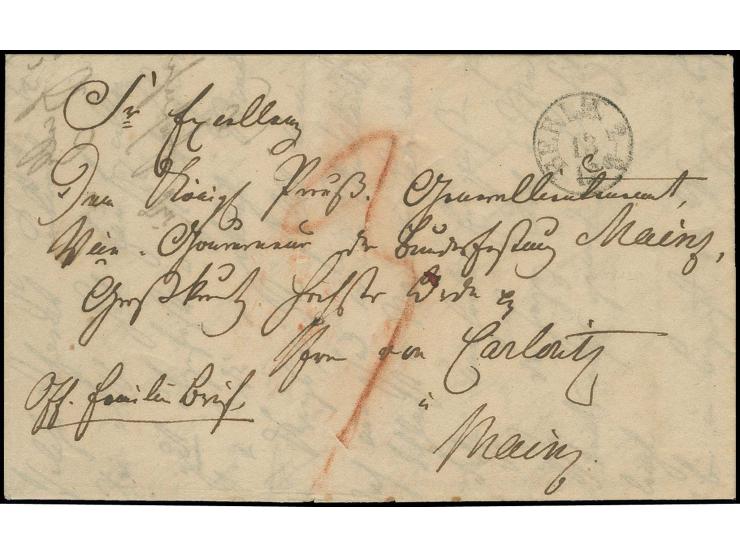 Sr Excellenz
BERLIN
12
Dem Königl. Preuß. Generallieutenant,
Vice-Gouverneur der Bundesfestung Mainz,
Großkreutz höchster Orden
Herrn von Carlowitz
Off. Familien Brief.
in
Mainz.
3